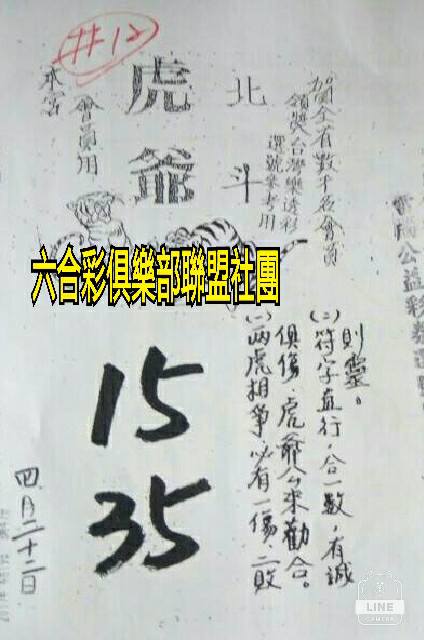 #12
加賀全省數千名會員
領獎台灣樂透彩
選號參考用
北斗
虎爺
會員用
六合彩俱樂部聯盟社團
(一)兩虎相爭必有一傷.二敗
俱傷.虎爺公來勸合。
(二)符字直行,合一數,有誠
則靈。
15
35
四月二十二日
LINE
CAMERA